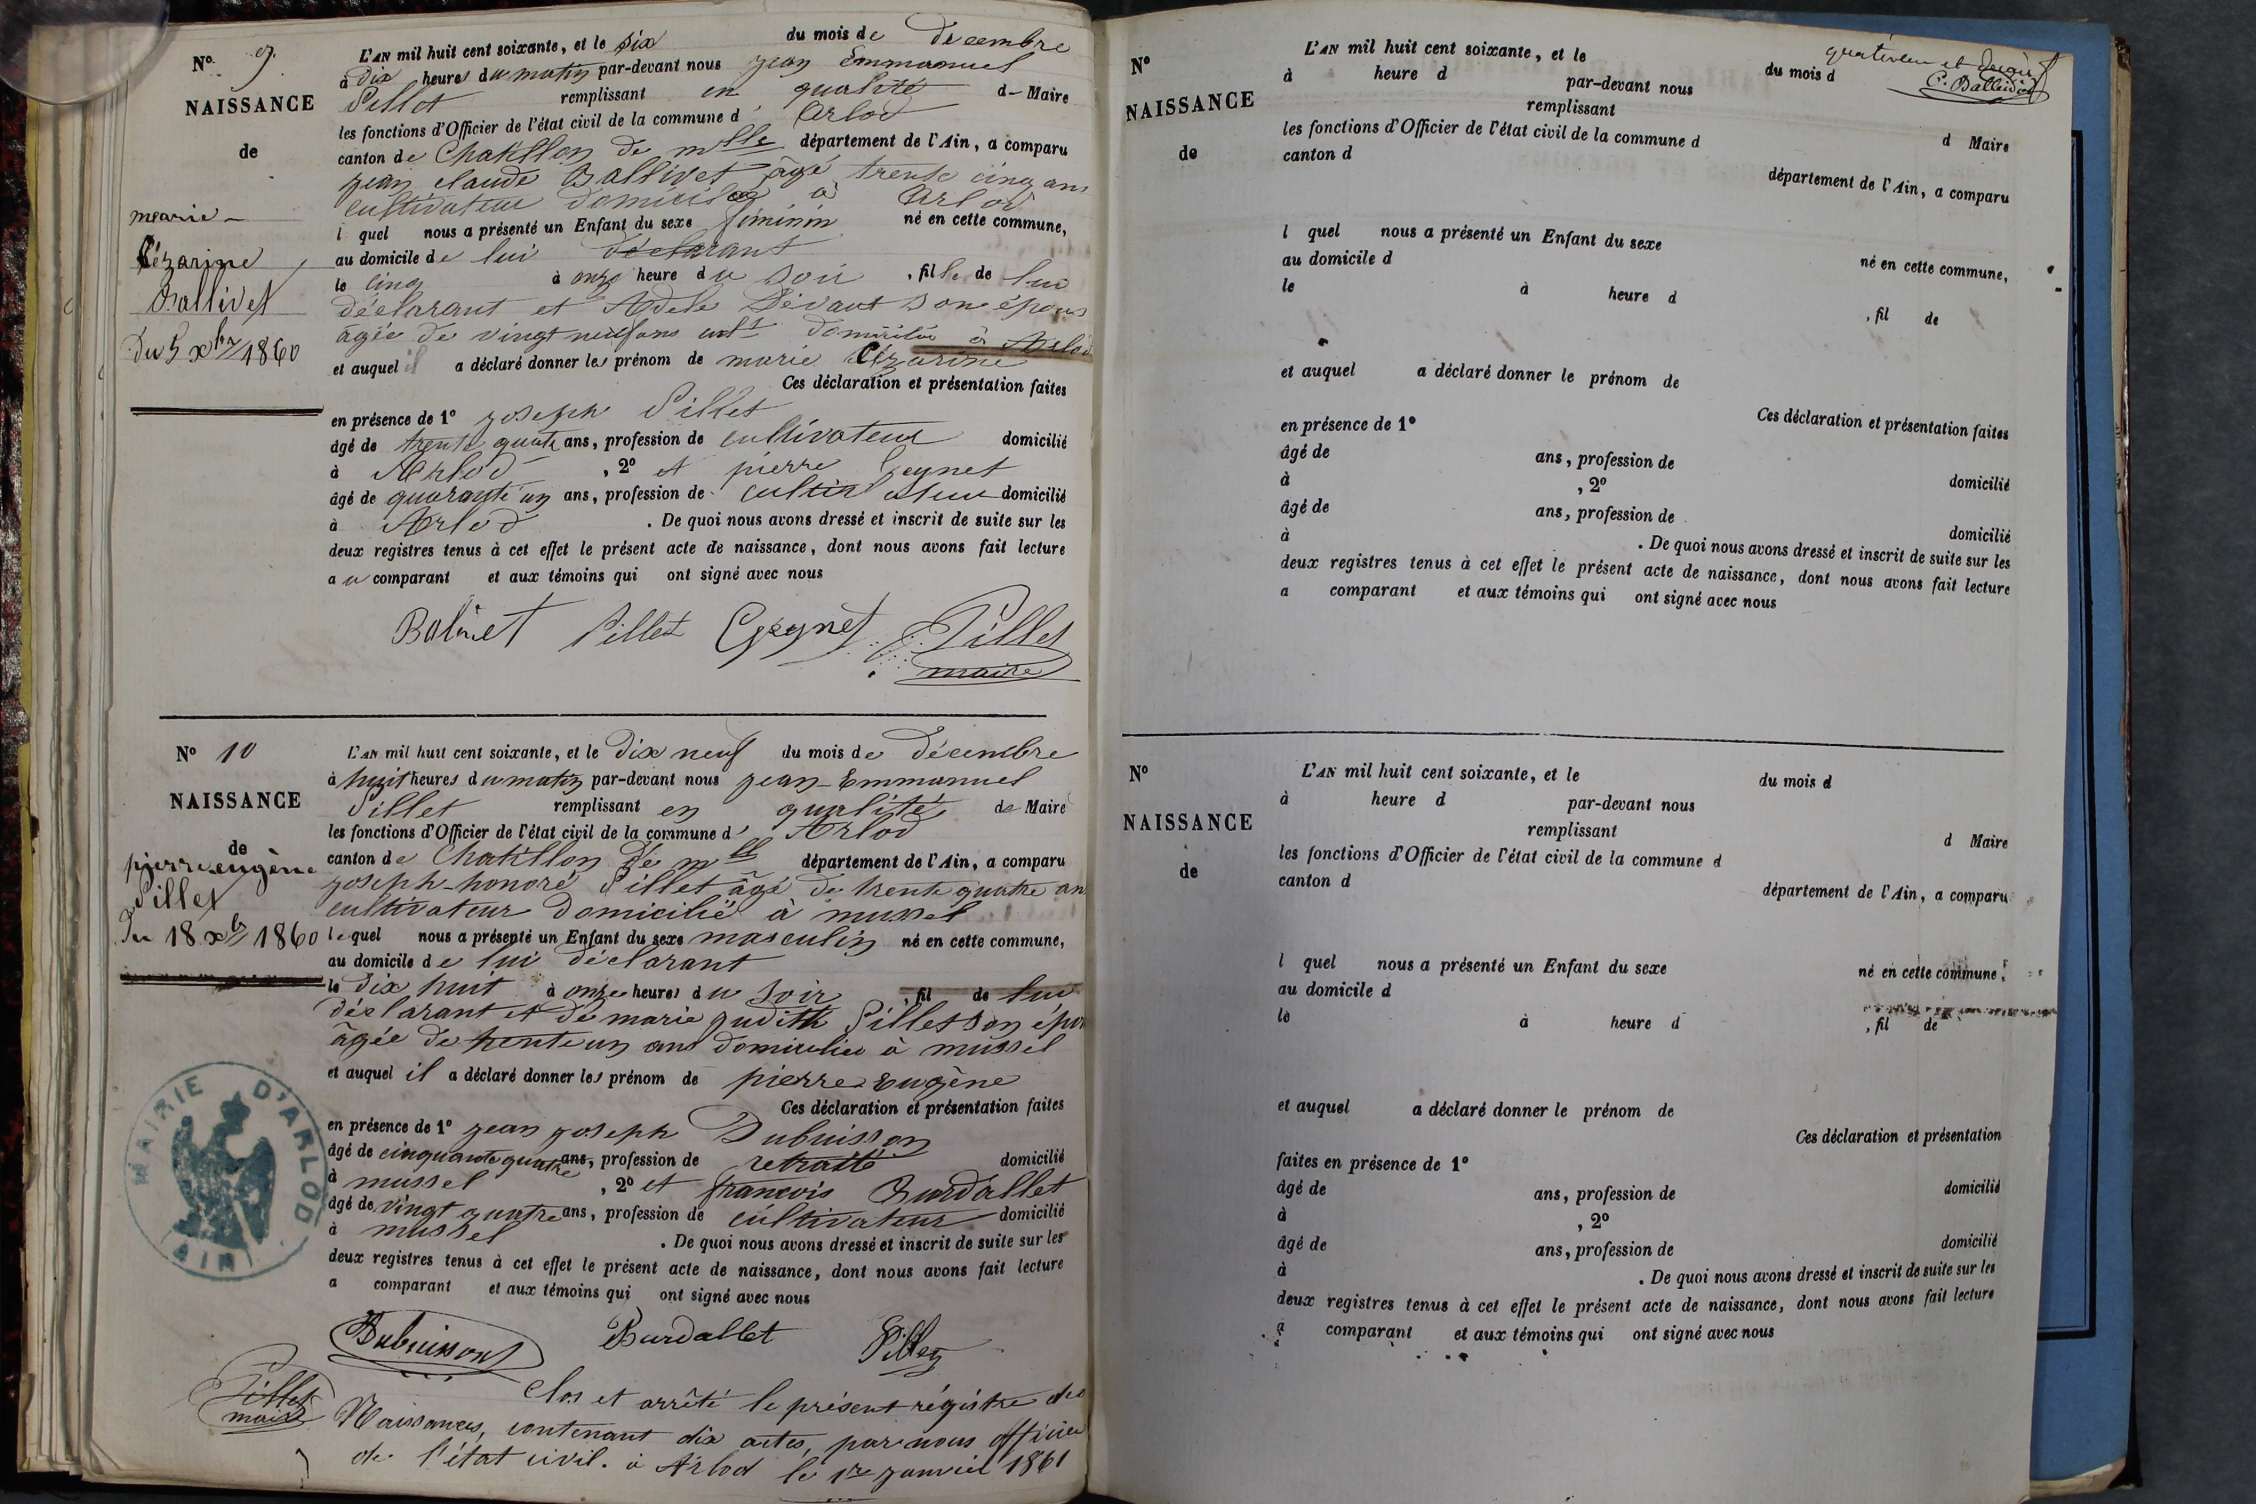 N° 9.
NAISSANCE
de
marie
Cézarine
Ballivet
Du 5 xbre 1860
L'AN mil huit cent soixante, et le six du mois de décembre
à dix heures du matin par-devant nous jean Emmanuel
Pillet remplissant en qualité de Maire
les fonctions d'Officier de l'état civil de la commune d' Arlod
canton de Chatillon de mlle département de l'Ain, a comparu
jean claude Ballivet âgé trente cinq ans
cultivateur domicilié à Arlod
l quel nous a présenté un Enfant du sexe féminin né en cette commune,
au domicile de lui déclarant
le cinq à onze heure du soir , fille de lui
déclarant et Adele Dévaut son épouse
agée de vingt neuf ans cultr domiciliée à Arlod
et auquel il a déclaré donner les prénom de marie Cézarine
Ces déclaration et présentation faites
en présence de 1° joseph Pillet
âgé de trente quatre ans, profession de cultivateur domicilié
à Arlod , 2° et pierre Geynet
âgé de quarante un ans, profession de cultivateur domicilié
à Arlod . De quoi nous avons dressé et inscrit de suite sur les
deux registres tenus à cet effet le présent acte de naissance, dont nous avons fait lecture
au comparant et aux témoins qui ont signé avec nous
Balivet Pillet Geynet Pillet
maire
N° 10
NAISSANCE
de
pierre eugène
Pillet
Du 18 xbre 1860
L'AN mil huit cent soixante, et le dix neuf du mois de décembre
à huit heures du matin par-devant nous jean-Emmanuel
Pillet remplissant en qualité de Maire
les fonctions d'Officier de l'état civil de la commune d' Arlod
canton de Chatillon de mlle département de l'Ain, a comparu
joseph-honoré Pillet âgé de trente quatre an
cultivateur domicilié à mussel
lequel nous a présenté un Enfant du sexe masculin né en cette commune,
au domicile de lui déclarant
le dix huit à onze heures du soir , fil de lui
déclarant et de marie judith Pillet son épou
âgée de trente un ans domiciliée à mussel
et auquel il a déclaré donner les prénom de pierre Eugène
Ces déclaration et présentation faites
en présence de 1° jean joseph Dubuisson
âgé de cinquante quatre ans, profession de retraité domicilié
à mussel , 2° et francois Burdallet
âgé de vingt quatre ans, profession de cultivateur domicilié
à mussel . De quoi nous avons dressé et inscrit de suite sur les
deux registres tenus à cet effet le présent acte de naissance, dont nous avons fait lecture
a comparant et aux témoins qui ont signé avec nous
MAIRIE D'ARLOD
(AIN)
Dubuisson Burdallet Pillet
Pillet
maire
Clos et arrêté le présent régistre des
Naissances, contenant dix actes, par nous officier
de l'état civil. à Arlod le 1er janvier 1861
quatrième et dernier
C. Balleidier
N°
NAISSANCE
de
L'AN mil huit cent soixante, et le du mois d
à heure d par-devant nous
remplissant d Maire
les fonctions d'Officier de l'état civil de la commune d
canton d département de l'Ain, a comparu
l quel nous a présenté un Enfant du sexe né en cette commune,
au domicile d
le à heure d , fil de
et auquel a déclaré donner le prénom de
Ces déclaration et présentation faites
en présence de 1°
âgé de ans, profession de domicilié
à , 2°
âgé de ans, profession de domicilié
à . De quoi nous avons dressé et inscrit de suite sur les
deux registres tenus à cet effet le présent acte de naissance, dont nous avons fait lecture
a comparant et aux témoins qui ont signé avec nous
N°
NAISSANCE
de
L'AN mil huit cent soixante, et le du mois d
à heure d par-devant nous
remplissant d Maire
les fonctions d'Officier de l'état civil de la commune d
canton d département de l'Ain, a comparu
l quel nous a présenté un Enfant du sexe né en cette commune,
au domicile d
le à heure d , fil de
et auquel a déclaré donner le prénom de
Ces déclaration et présentation
faites en présence de 1°
âgé de ans, profession de domicilié
à , 2°
âgé de ans, profession de domicilié
à . De quoi nous avons dressé et inscrit de suite sur les
deux registres tenus à cet effet le présent acte de naissance, dont nous avons fait lecture
a comparant et aux témoins qui ont signé avec nous